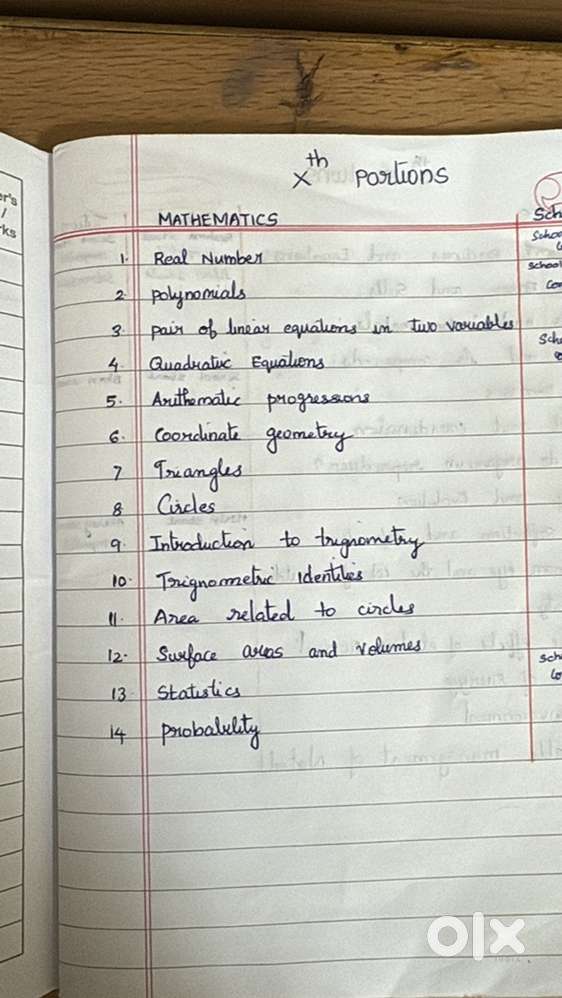 er's
/
ks
Xth Portions
MATHEMATICS
Sch
1. Real Number
Schoo
2. polynomials
School
Co
3. pair of linear equations in two variables
Sch
4. Quadratic Equations
5. Arithematic progressions
6. Coordinate geometry
7 Triangles
8 Circles
9. Introduction to trignometry
10. Trignometric Identities
11. Area related to circles
12. Surface areas and volumes
Sch
Co
13 Statistics
14 probability
olx